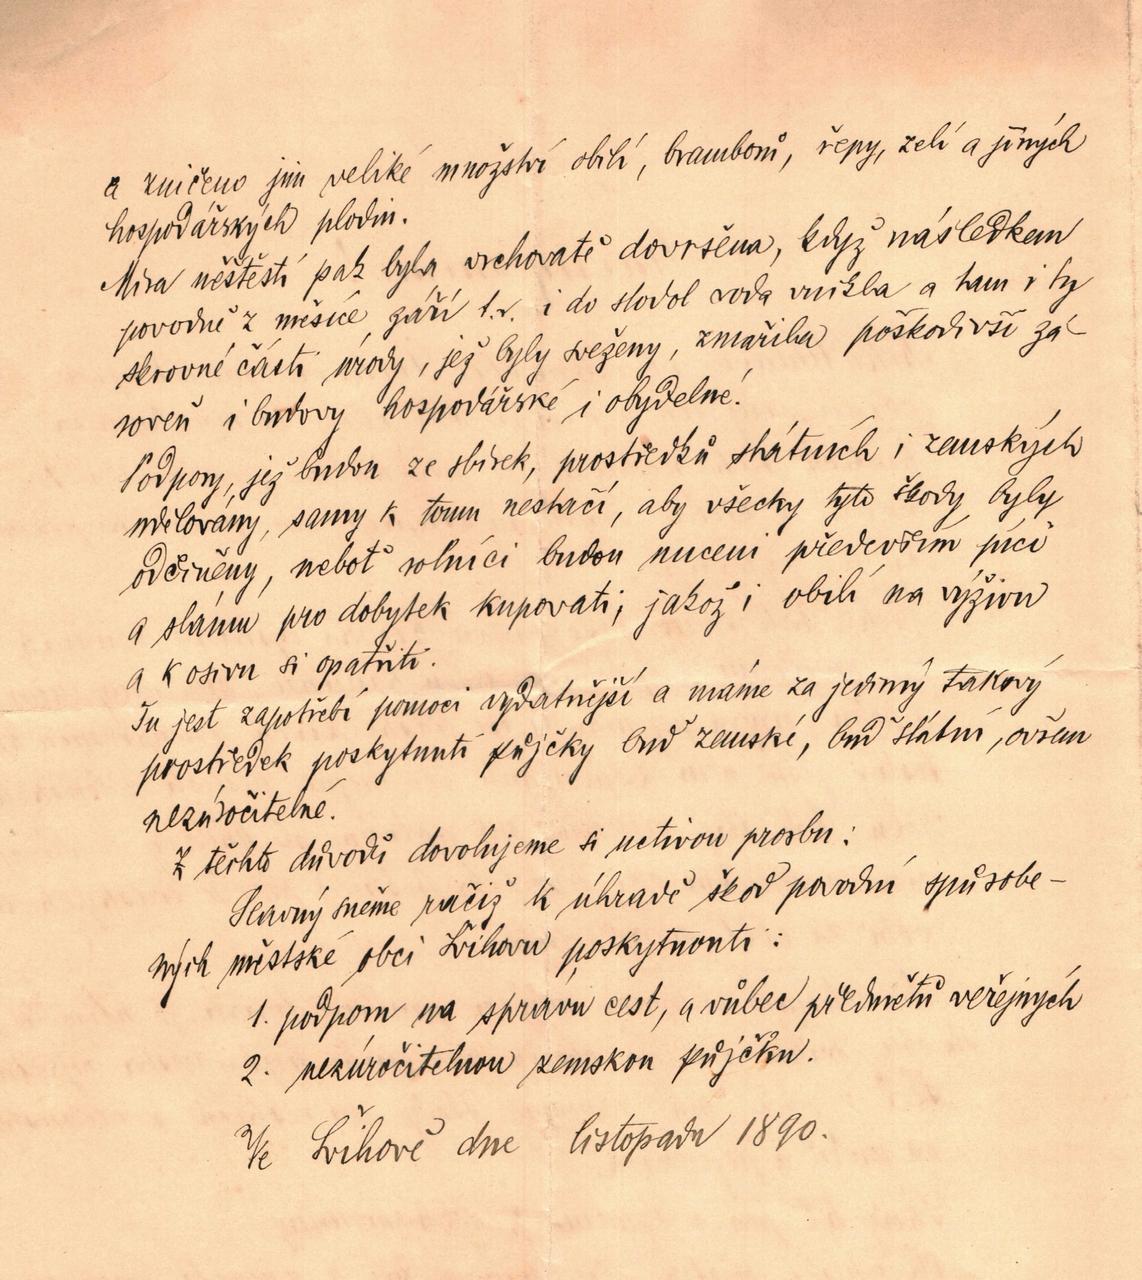 a zničeno jim veliké množství obilí, bramborů, řepy, zelí a jiných
hospodářských plodin.
Míra neštěstí pak byla vrchovatě dovršena, když následkem
povodně z měsíce září t. r. i do stodol voda vnikla a tam i ty
skrovné části úrody, jež byly svezeny, zmařila poškodivši zá-
roveň i budovy hospodářské i obydelné.
Podpory, jež budou ze sbírek, prostředků státních i zemských
udělovány, samy k tomu nestačí, aby všecky tyto škody byly
odčiněny, neboť rolníci budou nuceni především píci
a slámu pro dobytek kupovati, jakož i obilí na výživu
a k osivu si opatřiti.
Tu jest zapotřebí pomoci vydatnější a máme za jediný takový
prostředek poskytnutí půjčky buď zemské, buď státní, ovšem
nezúročitelné.
Z těchto důvodů dovolujeme si uctivou prosbu:
Slavný sněme račiž k úhradě škod povodní spůsobe-
ných městské obci Švihovu poskytnouti:
1. podporu na správu cest, a vůbec předmětů veřejných
2. nezúročitelnou zemskou půjčku.
Ve Švihově dne listopadu 1890.